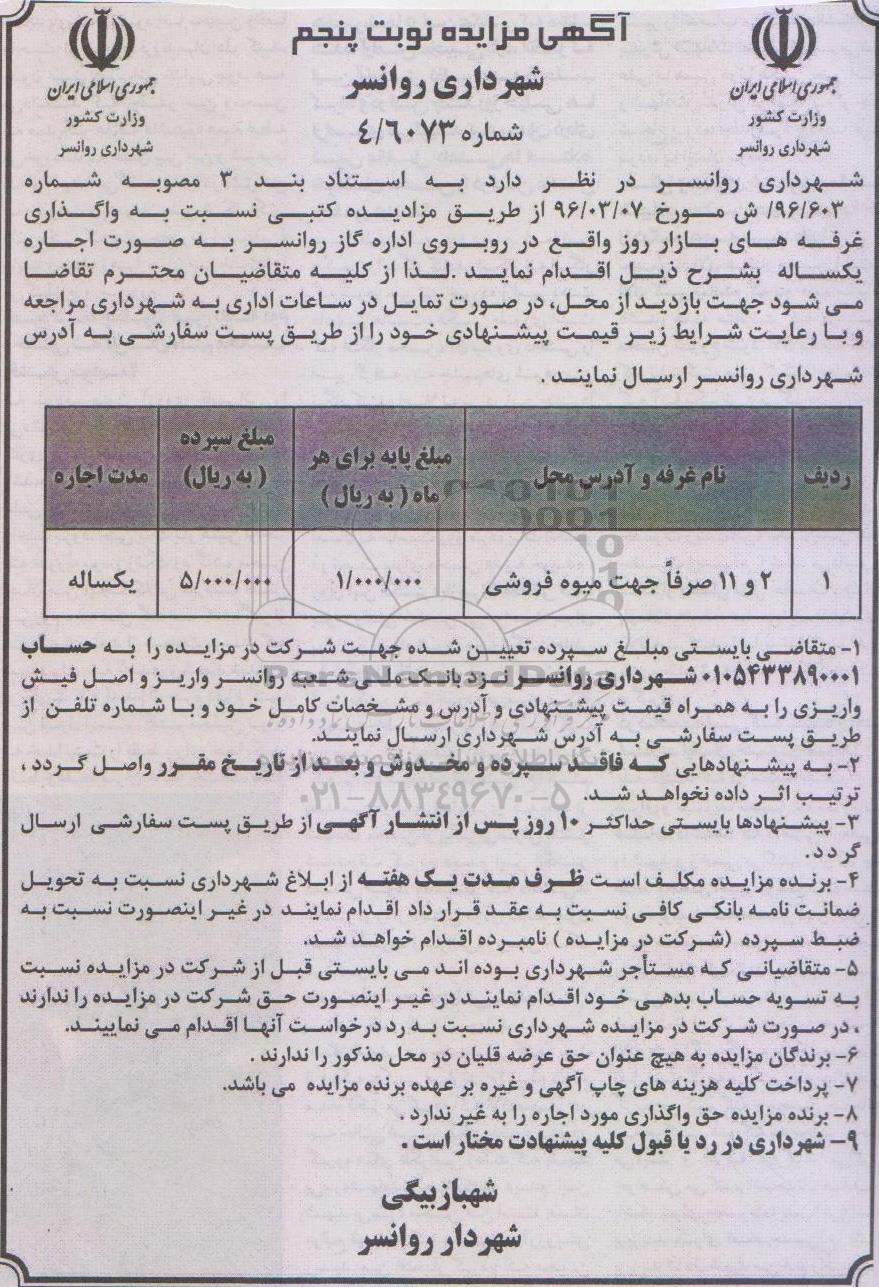 آگهی مزایده نوبت پنجم
شهرداری روانسر
شماره ۴/۶۰۷۳
جمهوری اسلامی ایران
وزارت کشور
شهرداری روانسر
جمهوری اسلامی ایران
وزارت کشور
شهرداری روانسر
شهرداری روانسر در نظر دارد به استناد بند ۳ مصوبه شماره
۹۶/۶۰۳/ ش مورخ ۹۶/۰۳/۰۷ از طریق مزادیده کتبی نسبت به واگذاری
غرفه های بازار روز واقع در روبروی اداره گاز روانسر به صورت اجاره
یکساله بشرح ذیل اقدام نماید .لذا از کلیه متقاضیان محترم تقاضا
می شود جهت بازدید از محل، در صورت تمایل در ساعات اداری به شهرداری مراجعه
و با رعایت شرایط زیر قیمت پیشنهادی خود را از طریق پست سفارشی به آدرس
شهرداری روانسر ارسال نمایند .
ردیف | نام غرفه و آدرس محل | مبلغ پایه برای هر ماه ( به ریال ) | مبلغ سپرده ( به ریال) | مدت اجاره
۱ | ۲ و ۱۱ صرفاً جهت میوه فروشی | ۱/۰۰۰/۰۰۰ | ۵/۰۰۰/۰۰۰ | یکساله
۱- متقاضی بایستی مبلغ سپرده تعیین شده جهت شرکت در مزایده را به حساب
۰۱۰۵۴۳۳۸۹۰۰۰۱ شهرداری روانسر نزد بانک ملی شعبه روانسر واریز و اصل فیش
واریزی را به همراه قیمت پیشنهادی و آدرس و مشخصات کامل خود و با شماره تلفن از
طریق پست سفارشی به آدرس شهرداری ارسال نمایند.
۲- به پیشنهادهایی که فاقد سپرده و مخدوش و بعد از تاریخ مقرر واصل گردد ،
ترتیب اثر داده نخواهد شد.
۳- پیشنهادها بایستی حداکثر ۱۰ روز پس از انتشار آگهی از طریق پست سفارشی ارسال
گردد.
۴- برنده مزایده مکلف است ظرف مدت یک هفته از ابلاغ شهرداری نسبت به تحویل
ضمانت نامه بانکی کافی نسبت به عقد قرار داد اقدام نمایند در غیر اینصورت نسبت به
ضبط سپرده (شرکت در مزایده ) نامبرده اقدام خواهد شد.
۵- متقاضیانی که مستأجر شهرداری بوده اند می بایستی قبل از شرکت در مزایده نسبت
به تسویه حساب بدهی خود اقدام نمایند در غیر اینصورت حق شرکت در مزایده را ندارند
، در صورت شرکت در مزایده شهرداری نسبت به رد درخواست آنها اقدام می نماییند.
۶- برندگان مزایده به هیچ عنوان حق عرضه قلیان در محل مذکور را ندارند .
۷- پرداخت کلیه هزینه های چاپ آگهی و غیره بر عهده برنده مزایده می باشد.
۸- برنده مزایده حق واگذاری مورد اجاره را به غیر ندارد .
۹- شهرداری در رد یا قبول کلیه پیشنهادت مختار است .
شهبازبیگی
شهردار روانسر
ParsNamadData
۰۲۱-۸۸۳۴۹۶۷۰-۵